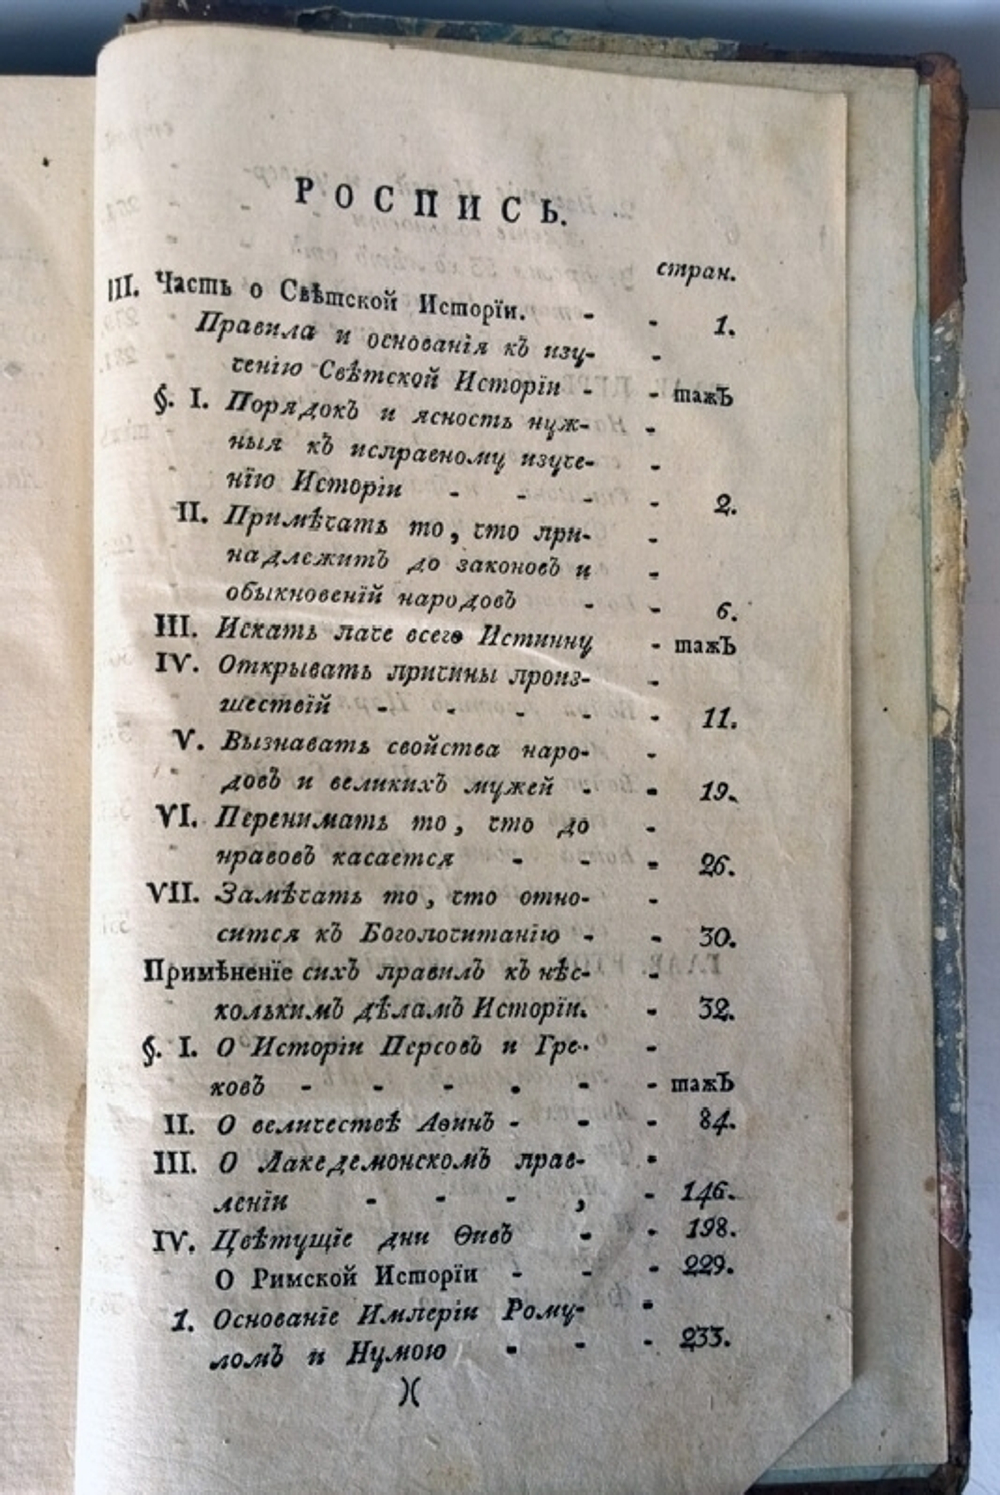 РОСПИСЬ.
стран.
III. Часть о Свѣтской Исторїи. - - 1.
Правила и основанїя къ изу- -
ченїю Свѣтской Исторїи - - тажЪ
§. I. Порядокъ и ясность нуж- -
ныя къ исправному изуче- -
нїю Исторїи - - - - 2.
II. Примѣчать то, что при- -
надлежитъ до законовъ и -
обыкновенїй народовъ - - 6.
III. Искать паче всего Истинну - тажЪ
IV. Открывать причины произ- -
шествїй - - - - - 11.
V. Вызнавать свойства наро- -
довъ и великихъ мужей - - 19.
VI. Перенимать то, что до -
нравовъ касается - - - 26.
VII. Замѣчать то, что отно- -
сится къ Богопочитанїю - - 30.
Примѣненїе сихъ правилъ къ нѣс- -
колькимъ дѣламъ Исторїи. - 32.
§. I. О Исторїи Персовъ и Гре- -
ковъ - - - - - - тажЪ
II. О величествѣ Аѳинъ - - - 84.
III. О Лакедемонскомъ прав- -
ленїи - - - , - 146.
IV. Цвѣтущїе дни Ѳивъ - - 198.
О Римской Исторїи - - - 229.
1. Основанїе Имперїи Рому- -
ломъ и Нумою - - - 233.
)(